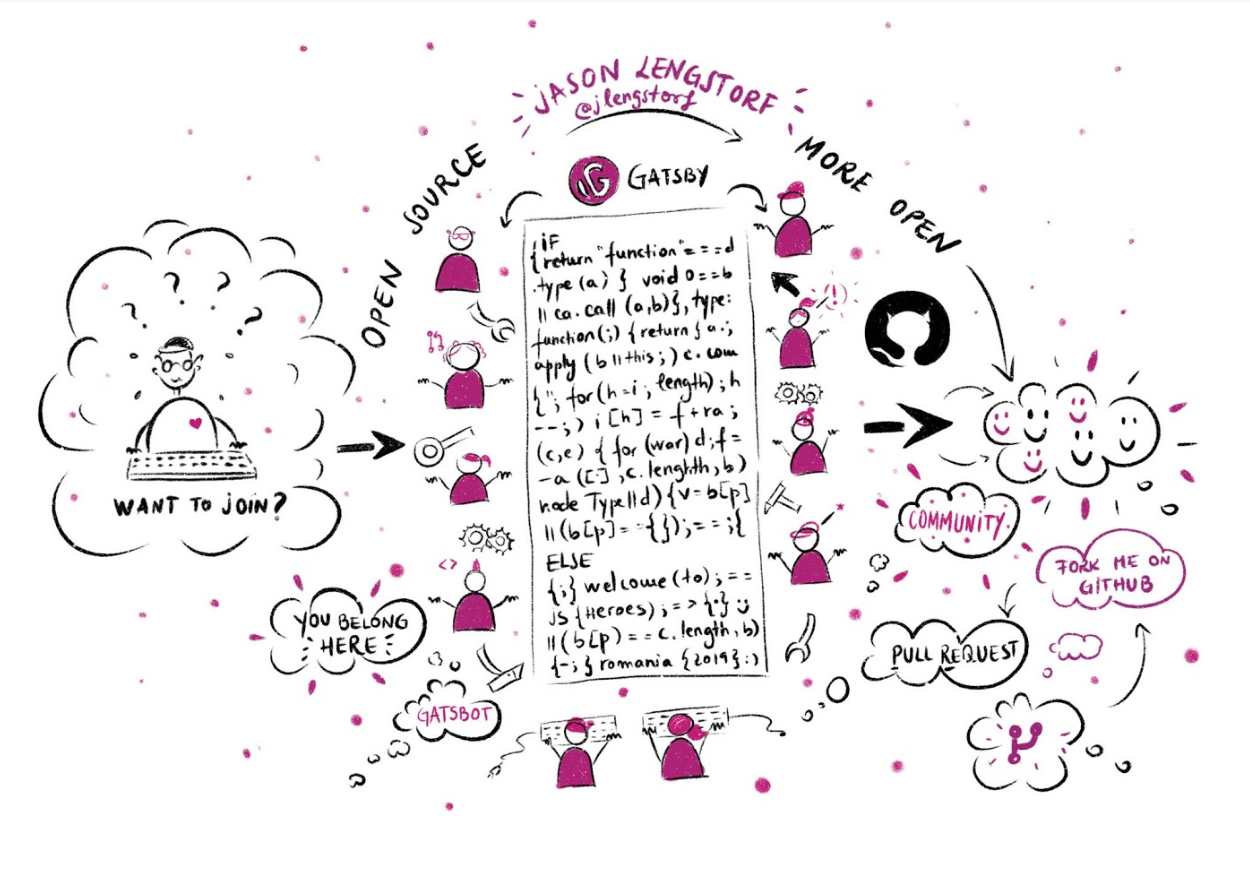 JASON LENGSTORF
@jlengstorf
OPEN SOURCE
MORE OPEN
GATSBY
WANT TO JOIN?
YOU BELONG
HERE
GATSBOT
<>
IF
{return "function"===d
.type(a) } void 0==b
|| ca.call (a,b)}, type:
function(;) {return { a.;
apply (b || this;) c.com
{"; for(h=i; length); h
--;) i [h] = f+ra;
(c,e) { for (war) d;f=
-a ([-] ,c.lenghth, b)
node Type||d) {v=b[p]
|| (b[p]=={});==;{
ELSE
{;} welcome(to);==
JS {Heroes};=> {·} :)
|| (b[p)==c.length, b)
{-;} romania {2019}:)
COMMUNITY
FORK ME ON
GITHUB
PULL REQUEST